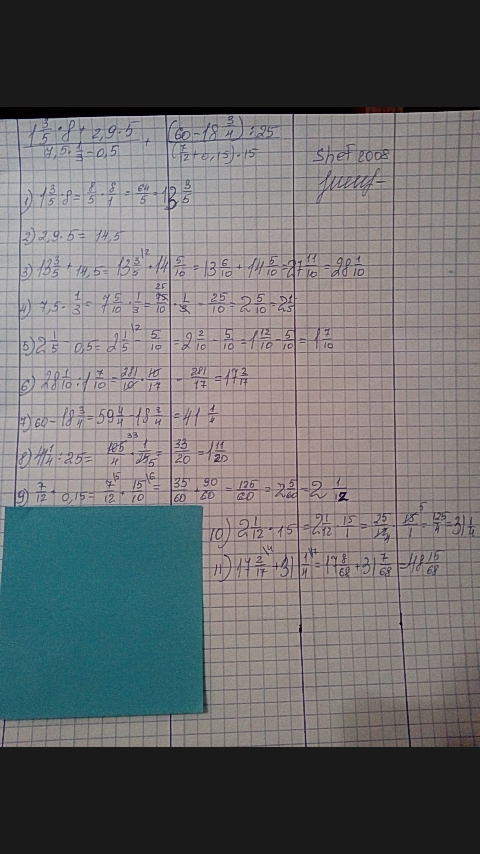 1 3/5 · 8 + 2,9 · 5 / 7,5 · 1/3 - 0,5 + (60 - 18 3/4) : 25 / (7/12 + 0,15) · 15
Shef 2008
1) 1 3/5 · 8 = 8/5 · 8/1 = 64/5 = 13 3/5
2) 2,9 · 5 = 14,5
3) 13 3/5 + 14,5 = 13 3/5 \2 + 14 5/10 = 13 6/10 + 14 5/10 = 27 11/10 = 28 1/10
4) 7,5 · 1/3 = 7 5/10 · 1/3 = 75/10 25 · 1/3 = 25/10 = 2 5/10 = 2 1/5
5) 2 1/5 - 0,5 = 2 1/5 \2 - 5/10 = 2 2/10 - 5/10 = 1 12/10 - 5/10 = 1 7/10
6) 28 1/10 : 1 7/10 = 281/10 · 10/17 = 281/17 = 17 2/17
7) 60 - 18 3/4 = 59 4/4 - 18 3/4 = 41 1/4
8) 41 1/4 : 25 = 165/4 33 · 1/25 5 = 33/20 = 1 11/20
9) 7/12 + 0,15 = 7/12 \5 + 15/10 \6 = 35/60 + 90/60 = 125/60 = 2 5/60 = 2 1/12
10) 2 1/12 · 15 = 2 1/12 · 15/1 = 25/12 4 · 15/1 5 = 125/4 = 31 1/4
11) 17 2/17 \4 + 31 1/4 \17 = 17 8/68 + 31 7/68 = 48 15/68